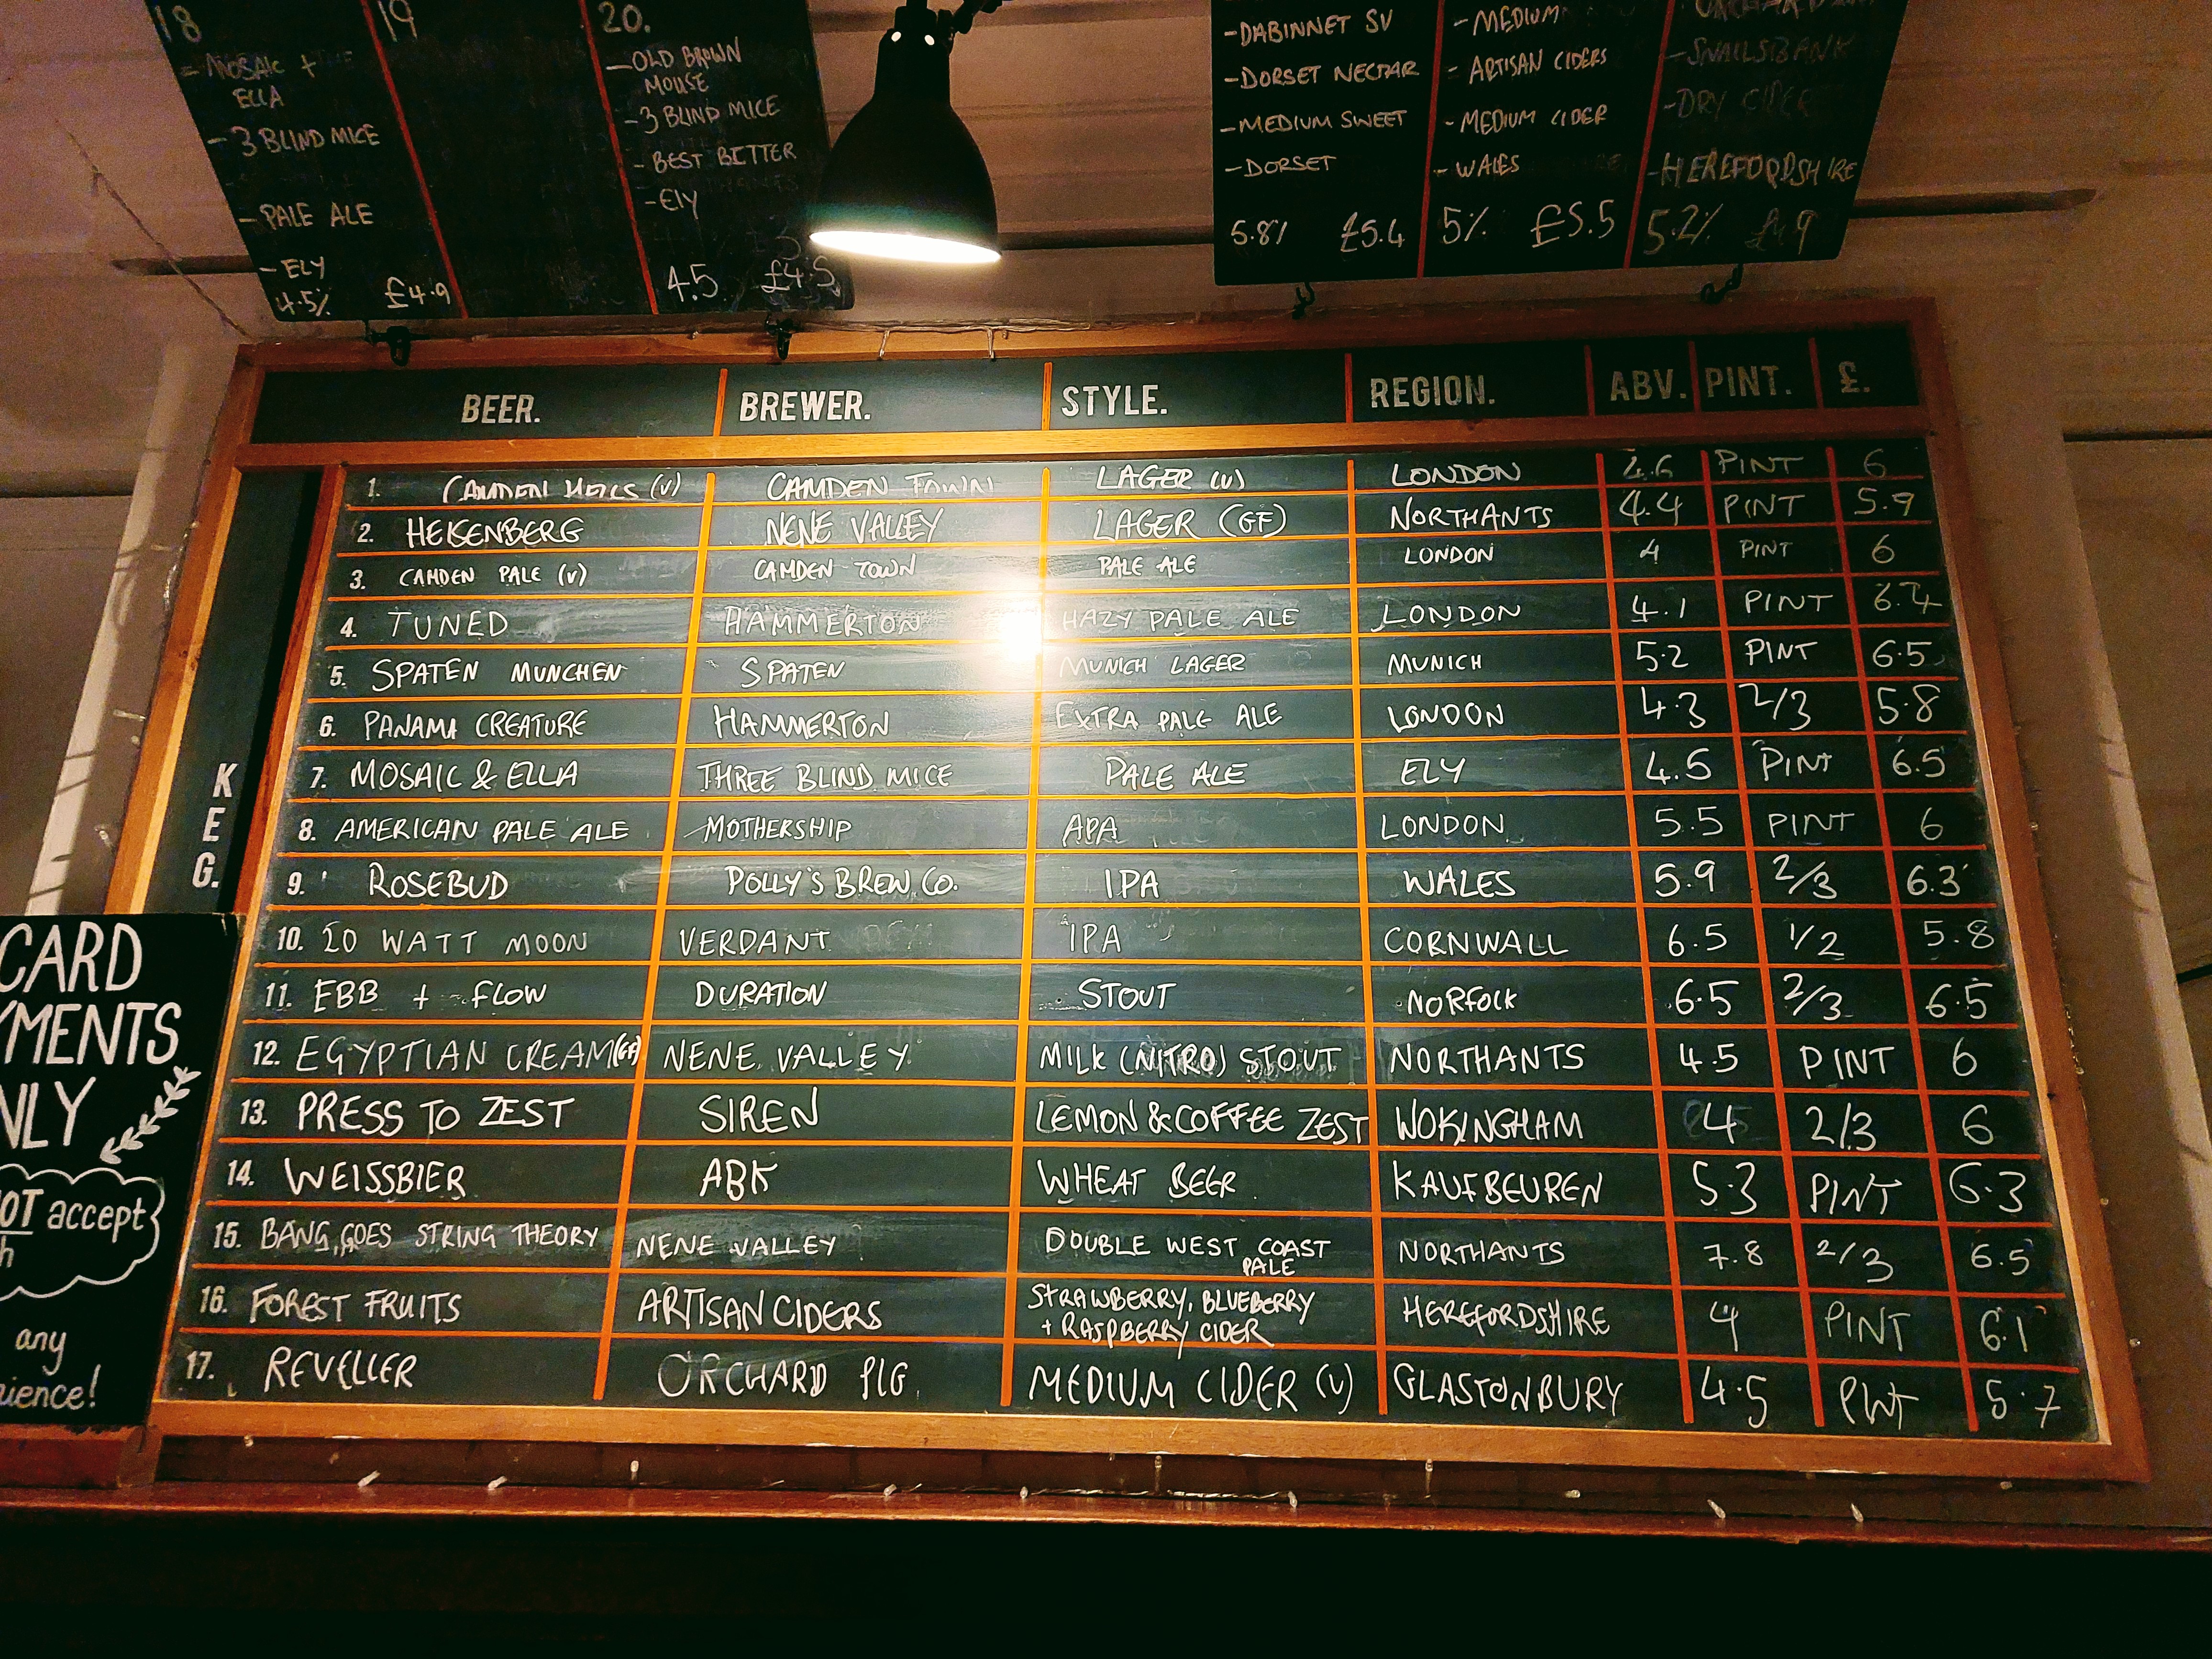 18
- MOSAIC +
ELLA
- 3 BLIND MICE
- PALE ALE
- ELY
4.5% £4.9
19
20.
- OLD BROWN
MOUSE
- 3 BLIND MICE
- BEST BITTER
- ELY
4.5 £4.5
- DABINNET SV
- DORSET NECTAR
- MEDIUM SWEET
- DORSET
5.8% £5.4
- MEDIUM
- ARTISAN CIDERS
- MEDIUM CIDER
- WALES
5% £5.5
- SNAILSBANK
- DRY CIDER
- HEREFORDSHIRE
5.2% £4.9
BEER. BREWER. STYLE. REGION. ABV. PINT. £.
KEG.
1. CAMDEN HELLS (V) CAMDEN TOWN LAGER (V) LONDON 4.6 PINT 6
2. HEISENBERG NENE VALLEY LAGER (GF) NORTHANTS 4.4 PINT 5.9
3. CAMDEN PALE (V) CAMDEN TOWN PALE ALE LONDON 4 PINT 6
4. TUNED HAMMERTON HAZY PALE ALE LONDON 4.1 PINT
5. SPATEN MUNCHEN SPATEN MUNICH LAGER MUNICH 5.2 PINT 6.5
6. PANAMA CREATURE HAMMERTON EXTRA PALE ALE LONDON 4.3 2/3 5.8
7. MOSAIC & ELLA THREE BLIND MICE PALE ALE ELY 4.5 PINT 6.5
8. AMERICAN PALE ALE MOTHERSHIP APA LONDON 5.5 PINT 6
9. ROSEBUD POLLY'S BREW. CO. IPA WALES 5.9 2/3 6.3
10. 20 WATT MOON VERDANT IPA CORNWALL 6.5 1/2 5.8
11. EBB + FLOW DURATION STOUT NORFOLK 6.5 2/3 6.5
12. EGYPTIAN CREAM (GF) NENE VALLEY MILK (NITRO) STOUT NORTHANTS 4.5 PINT 6
13. PRESS TO ZEST SIREN LEMON & COFFEE ZEST WOKINGHAM 4 2/3 6
14. WEISSBIER ABK WHEAT BEER KAUFBEUREN 5.3 PINT 6.3
15. BANG, GOES STRING THEORY NENE VALLEY DOUBLE WEST COAST PALE NORTHANTS 7.8 2/3 6.5
16. FOREST FRUITS ARTISAN CIDERS STRAWBERRY, BLUEBERRY + RASPBERRY CIDER HEREFORDSHIRE 4 PINT 6.1
17. REVELLER ORCHARD PIG MEDIUM CIDER (V) GLASTONBURY 4.5 PINT 5.7
CARD
YMENTS
NLY
OT accept
h
any
ience!